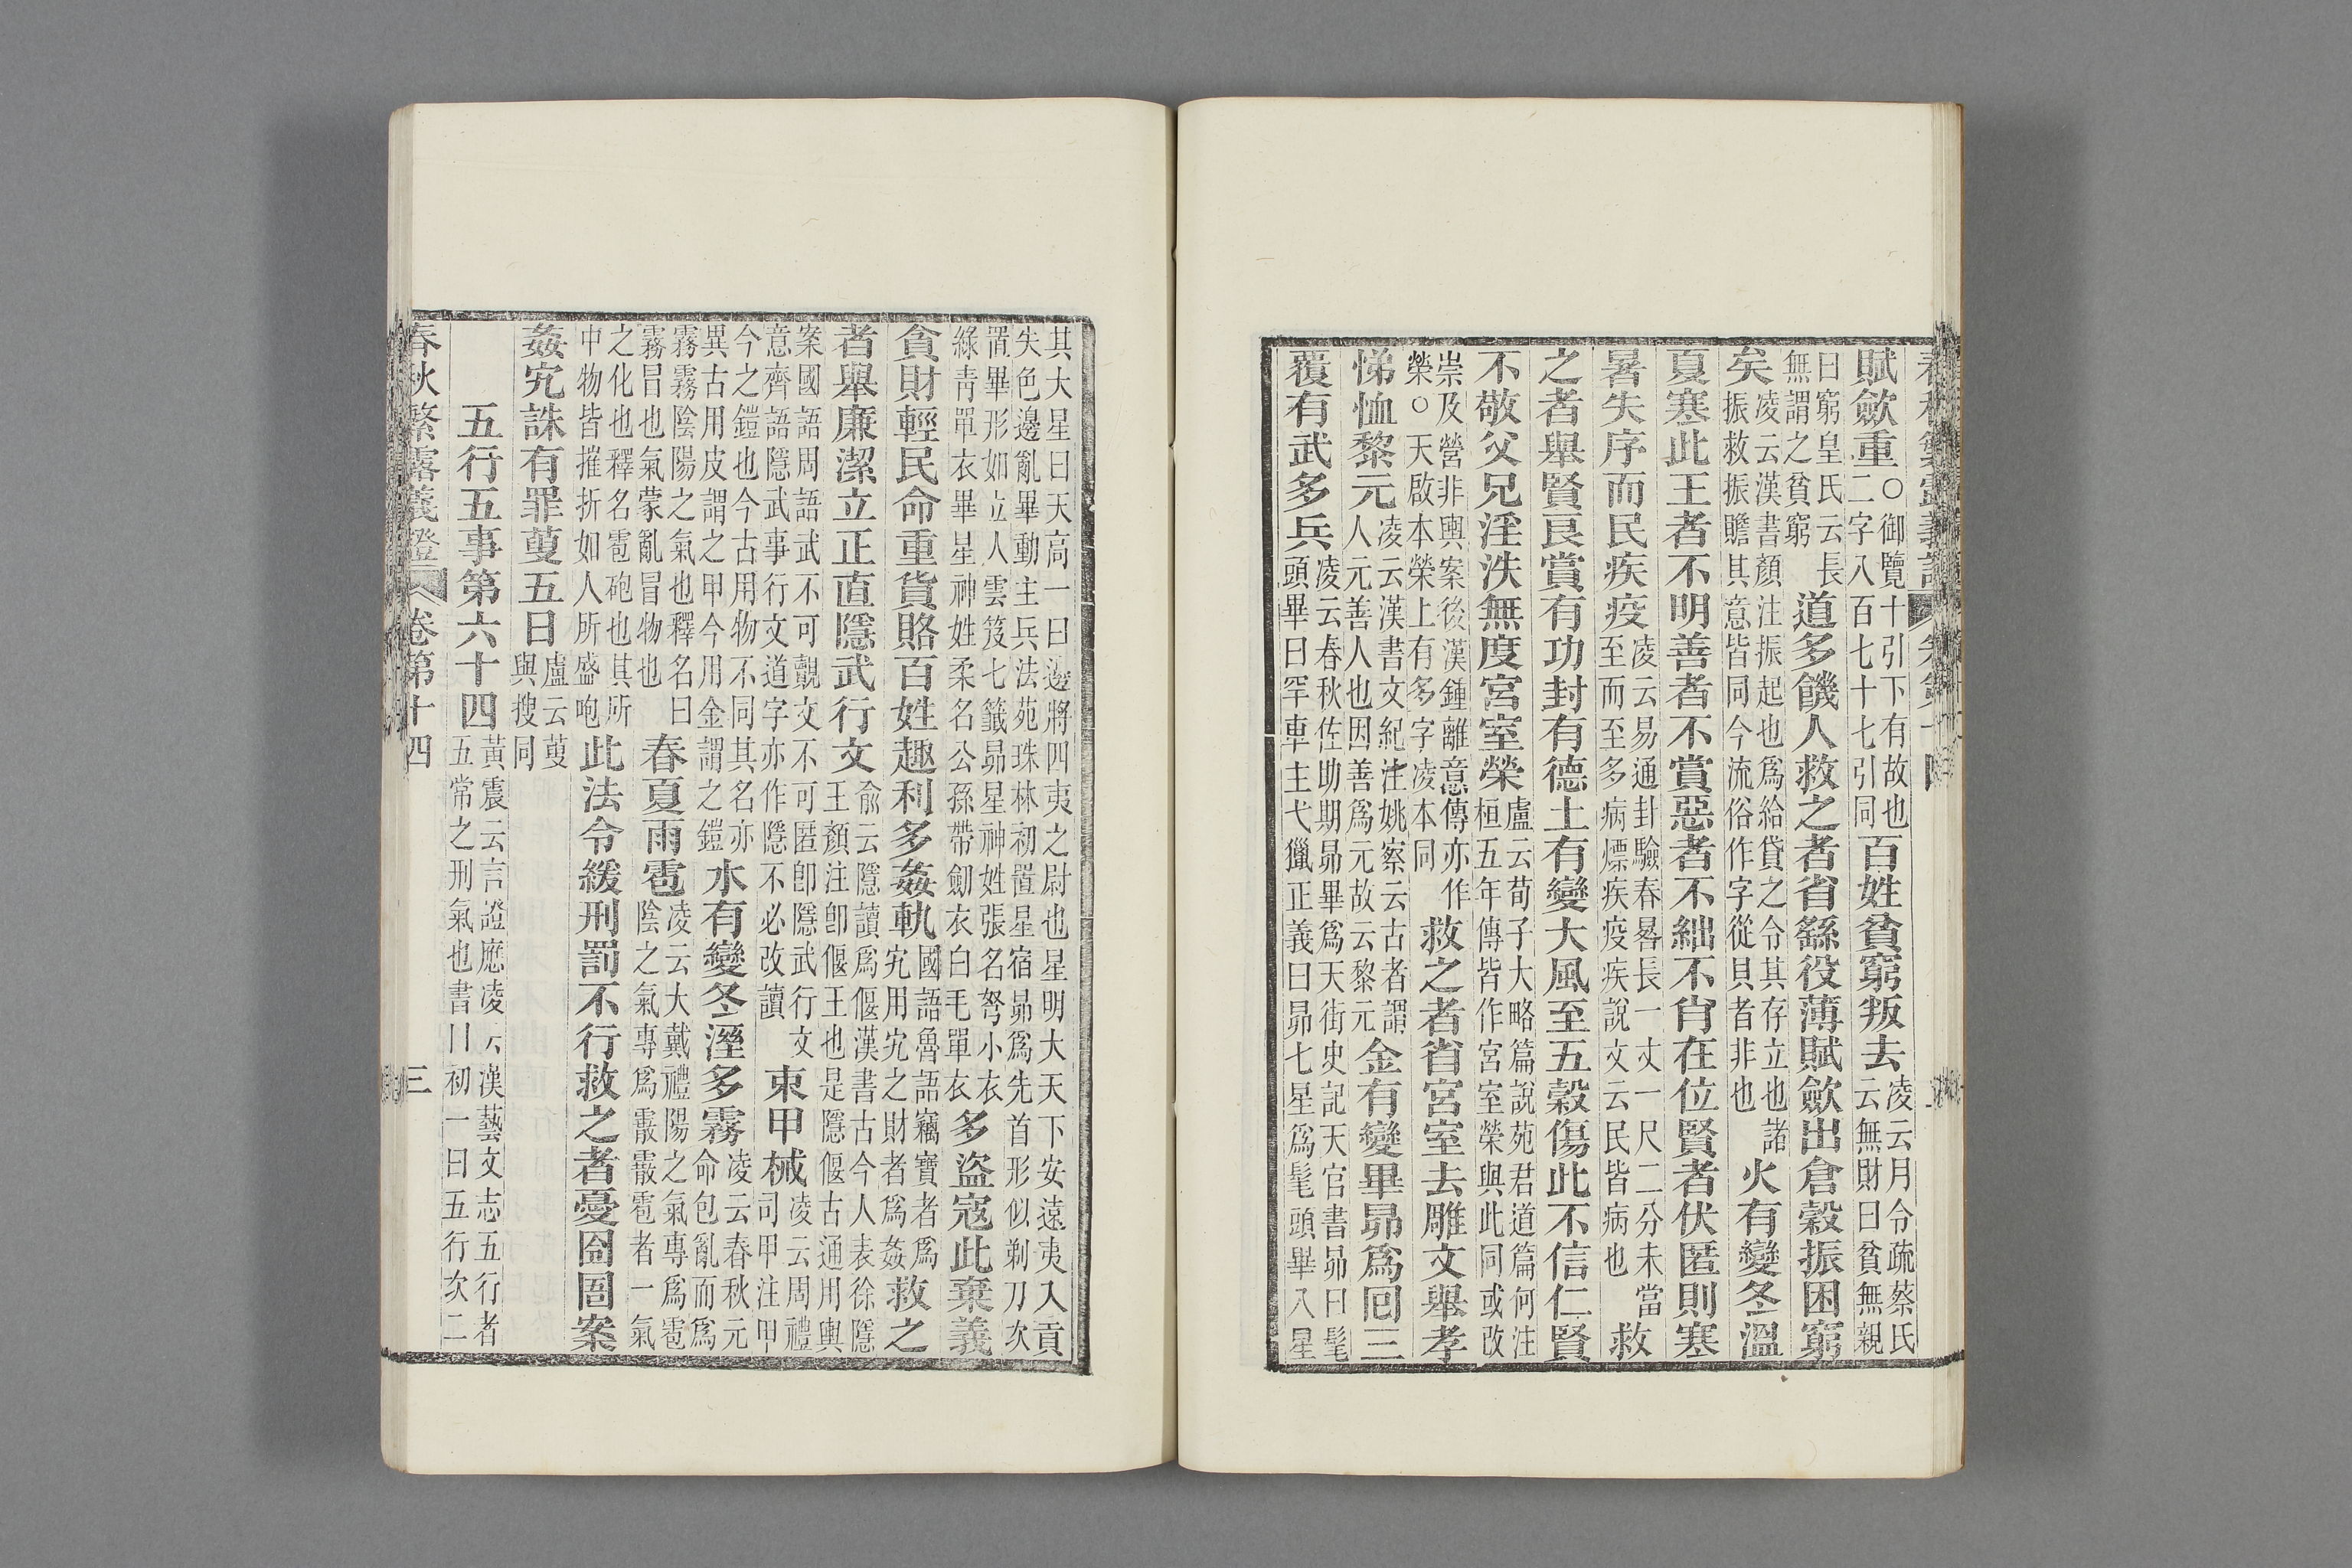 賦斂重○御覽十引下有故也二字八百七十七引同百姓貧窮叛去凌云月令疏蔡氏云無財曰貧無親
曰窮皇氏云長無謂之貧窮道多饑人救之者省繇役薄賦斂出倉穀振困窮
矣凌云漢書顏注振起也爲給貸之令其存立也諸振救振贍其意皆同今流俗作字從貝者非也火有變冬溫
夏寒此王者不明善者不賞惡者不絀不肖在位賢者伏匿則寒
暑失序而民疾疫凌云易通卦驗春晷長一丈一尺二分未當至而至多病熛疾疫疾說文云民皆病也救
之者舉賢良賞有功封有德土有變大風至五穀傷此不信仁賢
不敬父兄淫泆無度宮室榮盧云荀子大略篇說苑君道篇何注桓五年傳皆作宮室榮與此同或改
崇及營非輿案後漢鍾離意傳亦作榮○天啟本榮上有多字凌本同救之者省宮室去雕文舉孝
悌恤黎元凌云漢書文紀注姚察云古者謂人元善人也因善爲元故云黎元金有變畢昴爲囘三
覆有武多兵凌云春秋佐助期昴畢爲天街史記天官書昴曰髦頭畢曰罕車主弋獵正義曰昴七星爲髦頭畢八星
其大星曰天高一曰邊將四夷之尉也星明大天下安遠夷入貢失色邊亂畢動主兵法苑珠林初置星宿昴爲先首形似剃刀次
置畢形如立人雲笈七籤昴星神姓張名弩小衣綠青單衣畢星神姓柔名公孫帶劒衣白毛單衣多盜寇此棄義
貪財輕民命重貨賂百姓趣利多姦軌國語魯語竊寶者爲宄用宄之財者爲姦救之
者舉廉潔立正直隱武行文俞云隱讀爲偃漢書古今人表徐隱王顏注卽偃王也是隱偃古通用輿
案國語周語武不可覿文不可匿卽隱武行文意齊語隱武事行文道字亦作隱不必改讀束甲械凌云周禮司甲注甲
今之鎧也今古用物不同其名亦異古用皮謂之甲今用金謂之鎧水有變冬溼多霧凌云春秋元命包亂而爲
霧霧陰陽之氣也釋名曰霧冒也氣蒙亂冒物也春夏雨雹凌云大戴禮陽之氣專爲雹陰之氣專爲霰霰雹者一氣
之化也釋名雹砲也其所中物皆摧折如人所盛咆此法令緩刑罰不行救之者憂囹圄案
姦宄誅有罪䕅五日盧云䕅與搜同
五行五事第六十四黃震云言證應凌云漢藝文志五行者五常之刑氣也書曰初一曰五行次二
春秋繁露義證 卷第十四 三